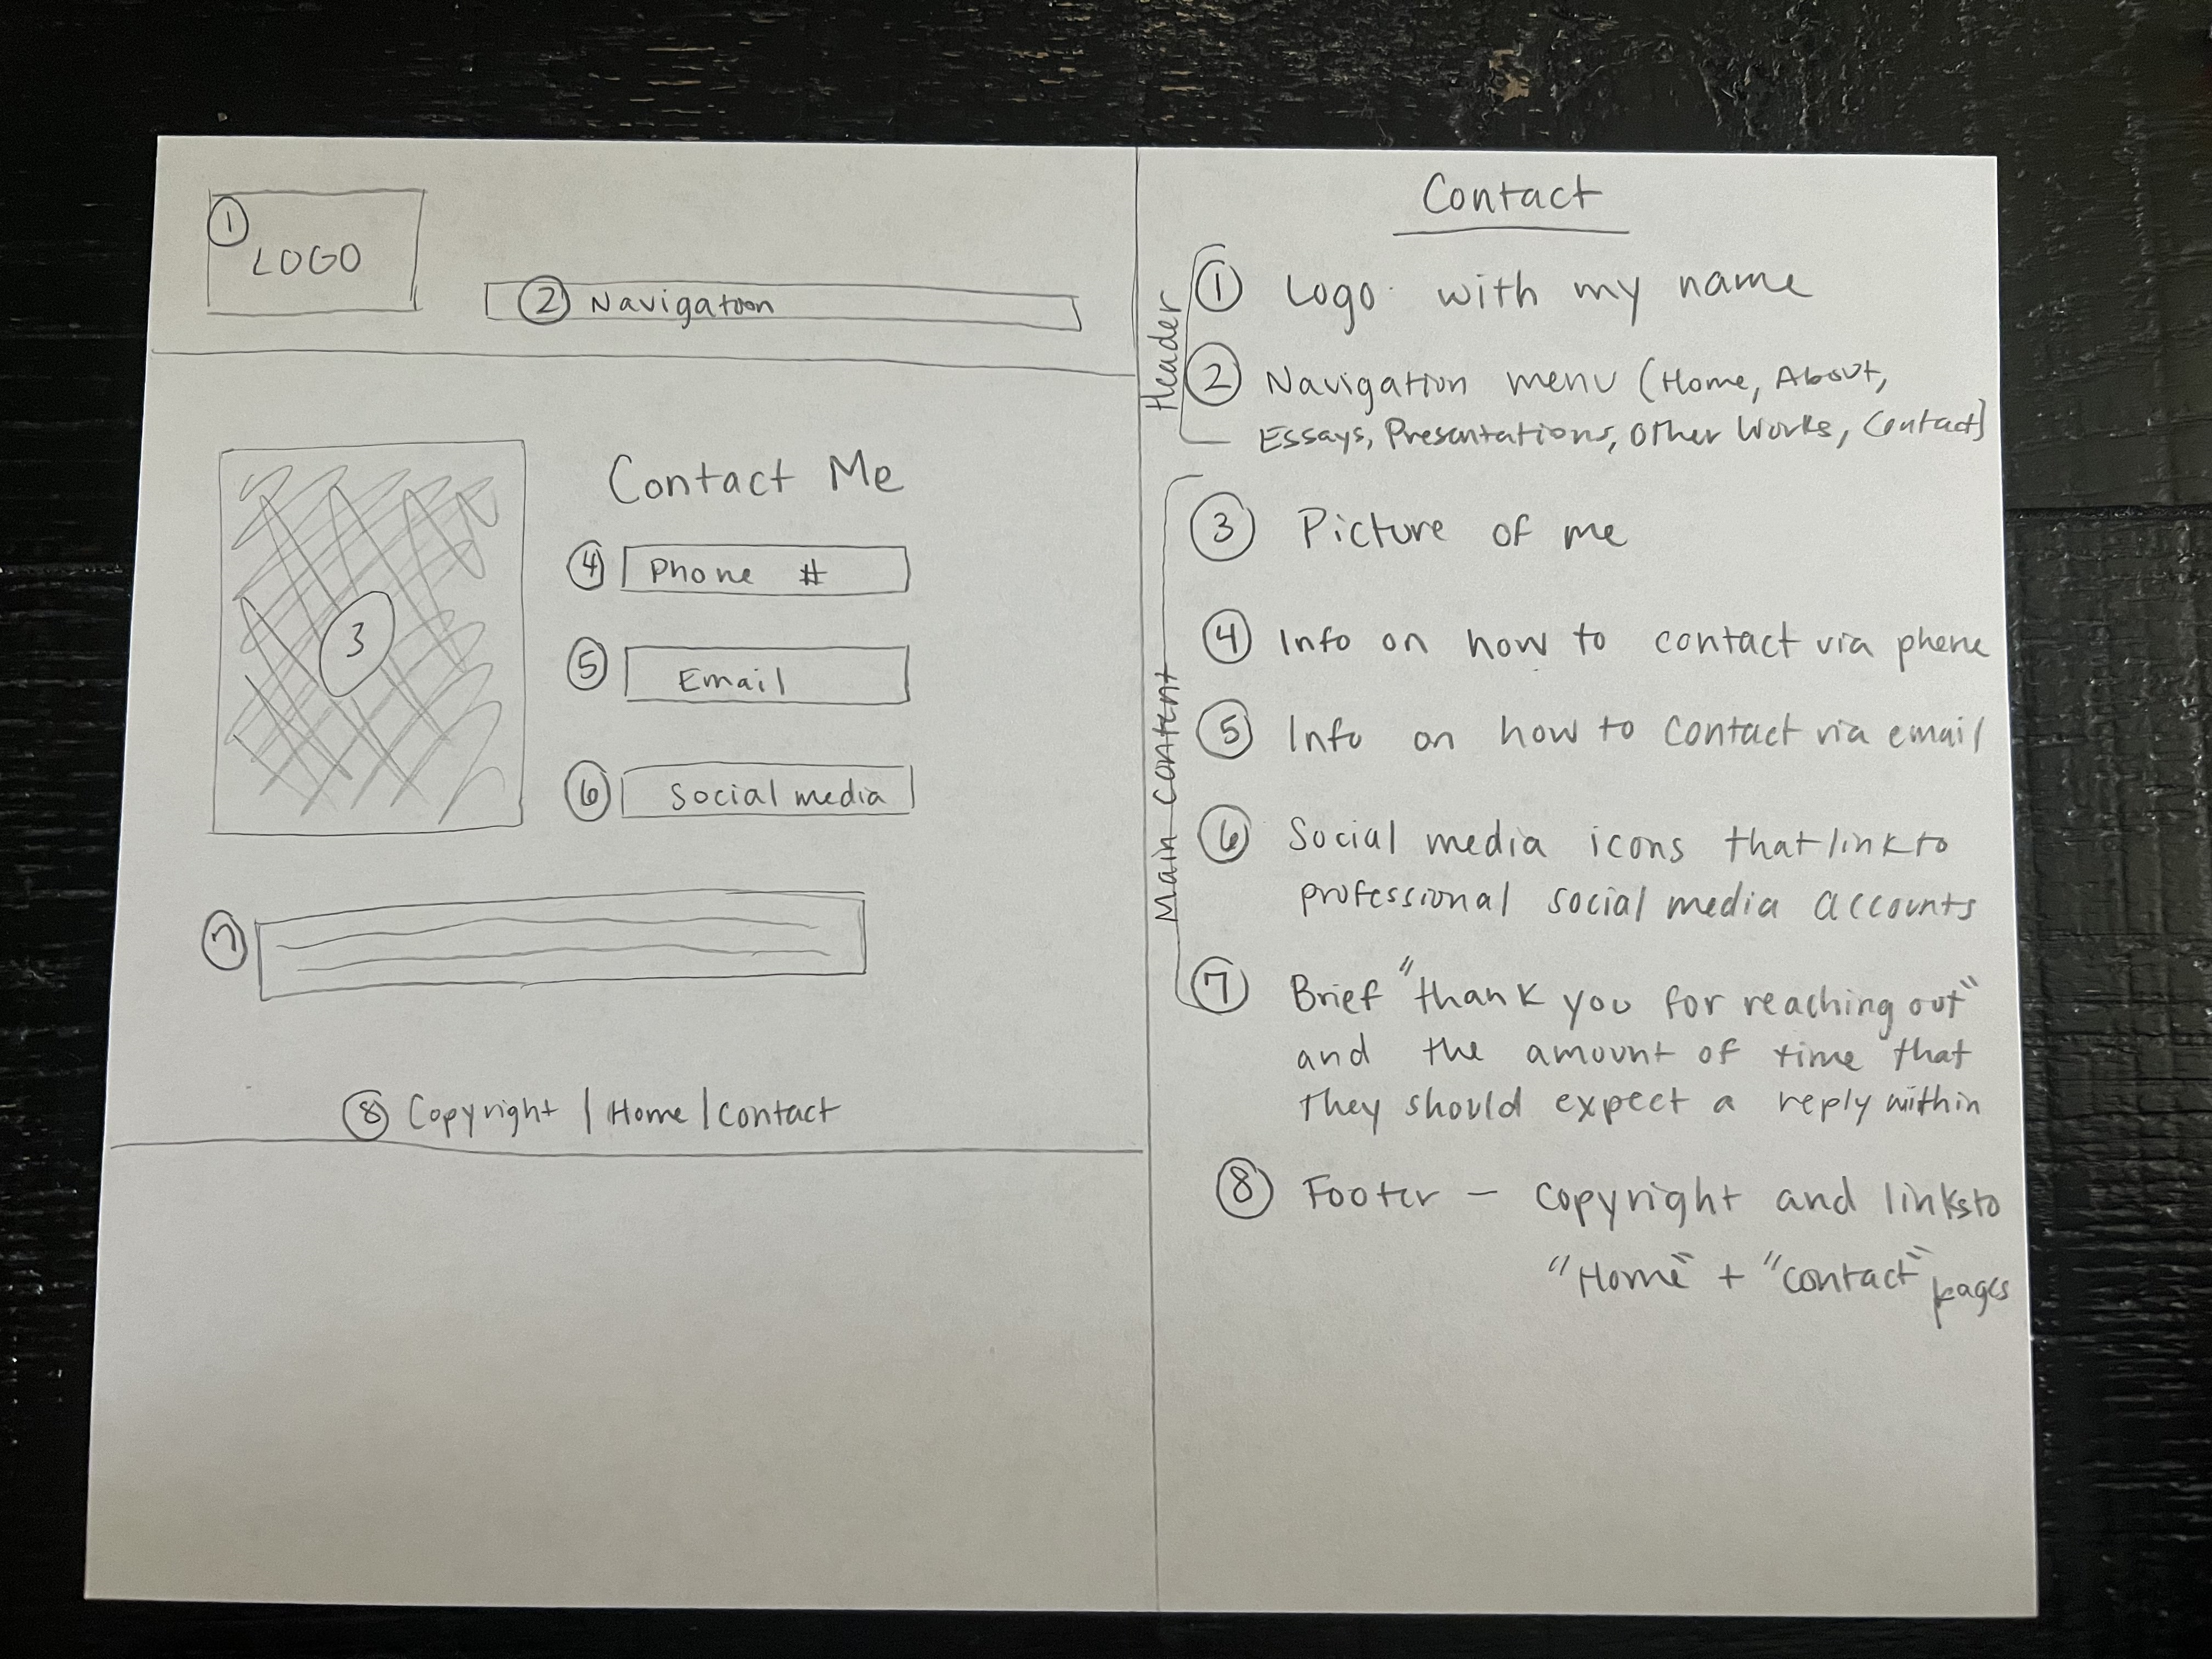 1
LOGO
2 Navigatoon
Contact Me
4 Phone #
5 Email
6 Social media
3
7
8 Copyright | Home | Contact
Contact
Header
1 Logo with my name
2 Navigation menu (Home, About,
Essays, Presentations, Other Works, Contact)
Main Content
3 Picture of me
4 Info on how to contact via phone
5 Info on how to contact via email
6 Social media icons that link to
professional social media accounts
7 Brief "thank you for reaching out"
and the amount of time that
they should expect a reply within
8 Footer – Copyright and links to
"Home" + "Contact" pages